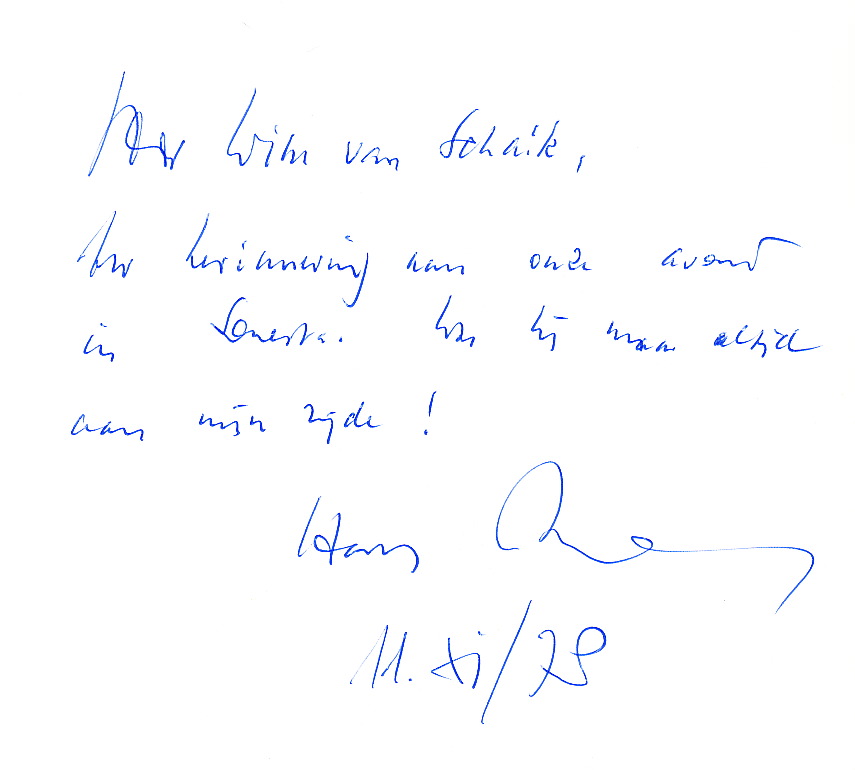 Voor Wim van Schaik,
Ter herinnering aan onze avond
in Sonesta. Was hij maar altijd
aan mijn zijde!
Hans
11.XI/78